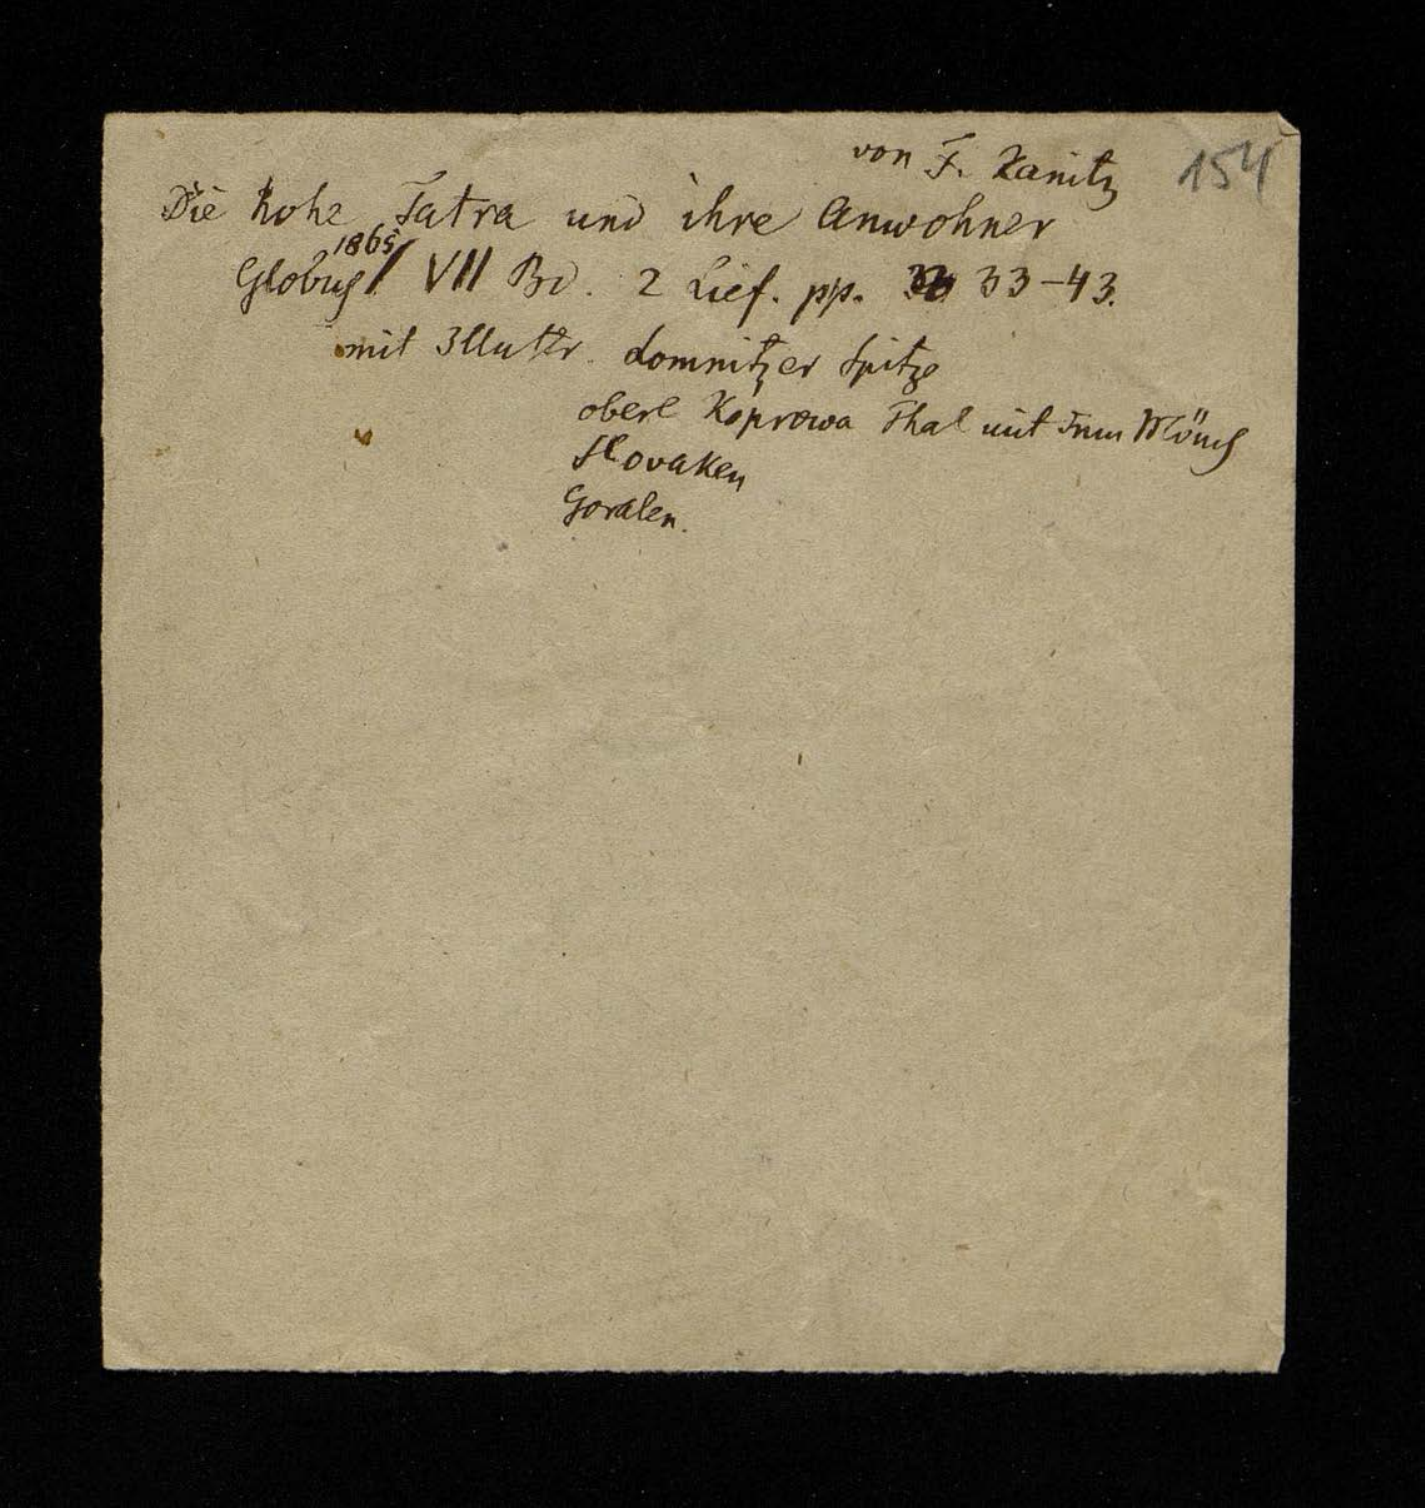 von F. Kanitz 154
Die hohe Tatra und ihre Anwohner
1865
Globus VII Bd. 2 Lief. pp. 33-43.
mit Illustr. Lomnitzer Spitze
obere Koprowa Thal mit dem Mönch
Slovaken
Goralen.